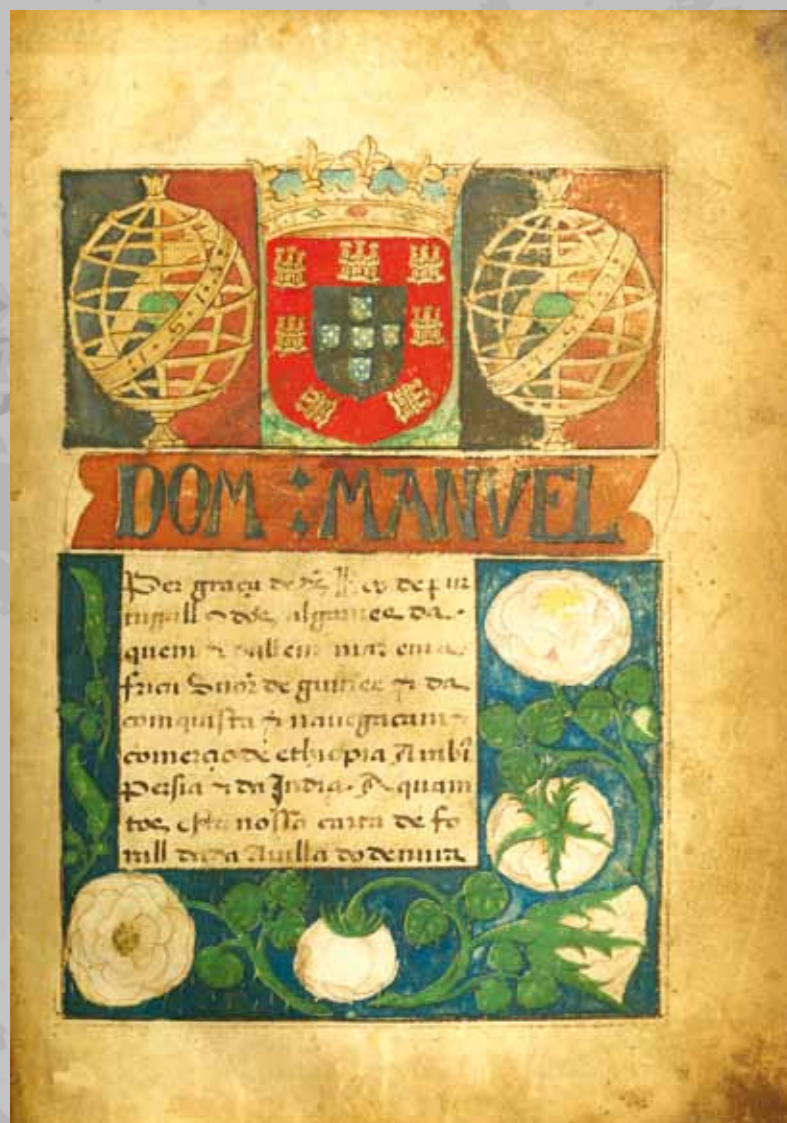 DOM : MANVEL
Per graça de ds Rey de pur
tugall & dos algarues da
quem & dallem mar em a
frica Snor de guinee & da
comquista & nauegacam &
comercio de ethiopia Arabi
Persia & da India. A quam
tos esta nossa carta de fo
rall dada Auilla dodemira